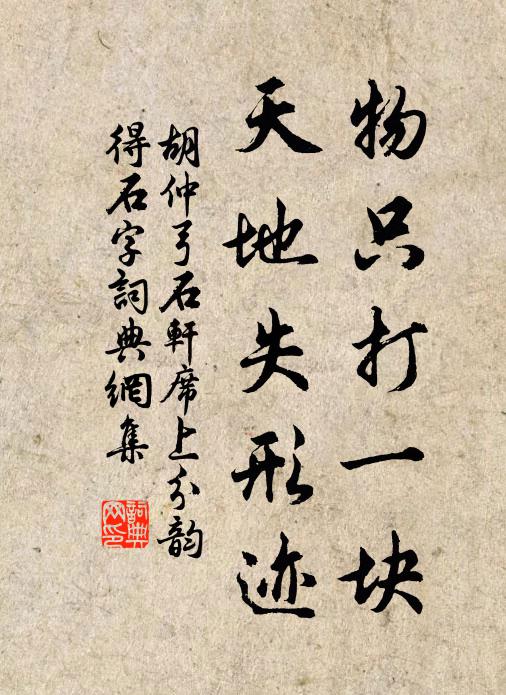 物只打一块
天地失形迹
胡仲弓石軒席上分韵
得石字詞典網集
詞典
网印